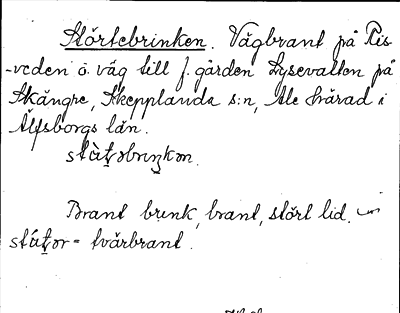 Störtebrinken. Vägbrant på Ris-
-veden o. väg till f. gården Lysevatten på
Skångne, Skepplanda s:n, Ale härad i
Älfsborgs län.
Brant brink, brant, stört lid.
= tvärbrant.